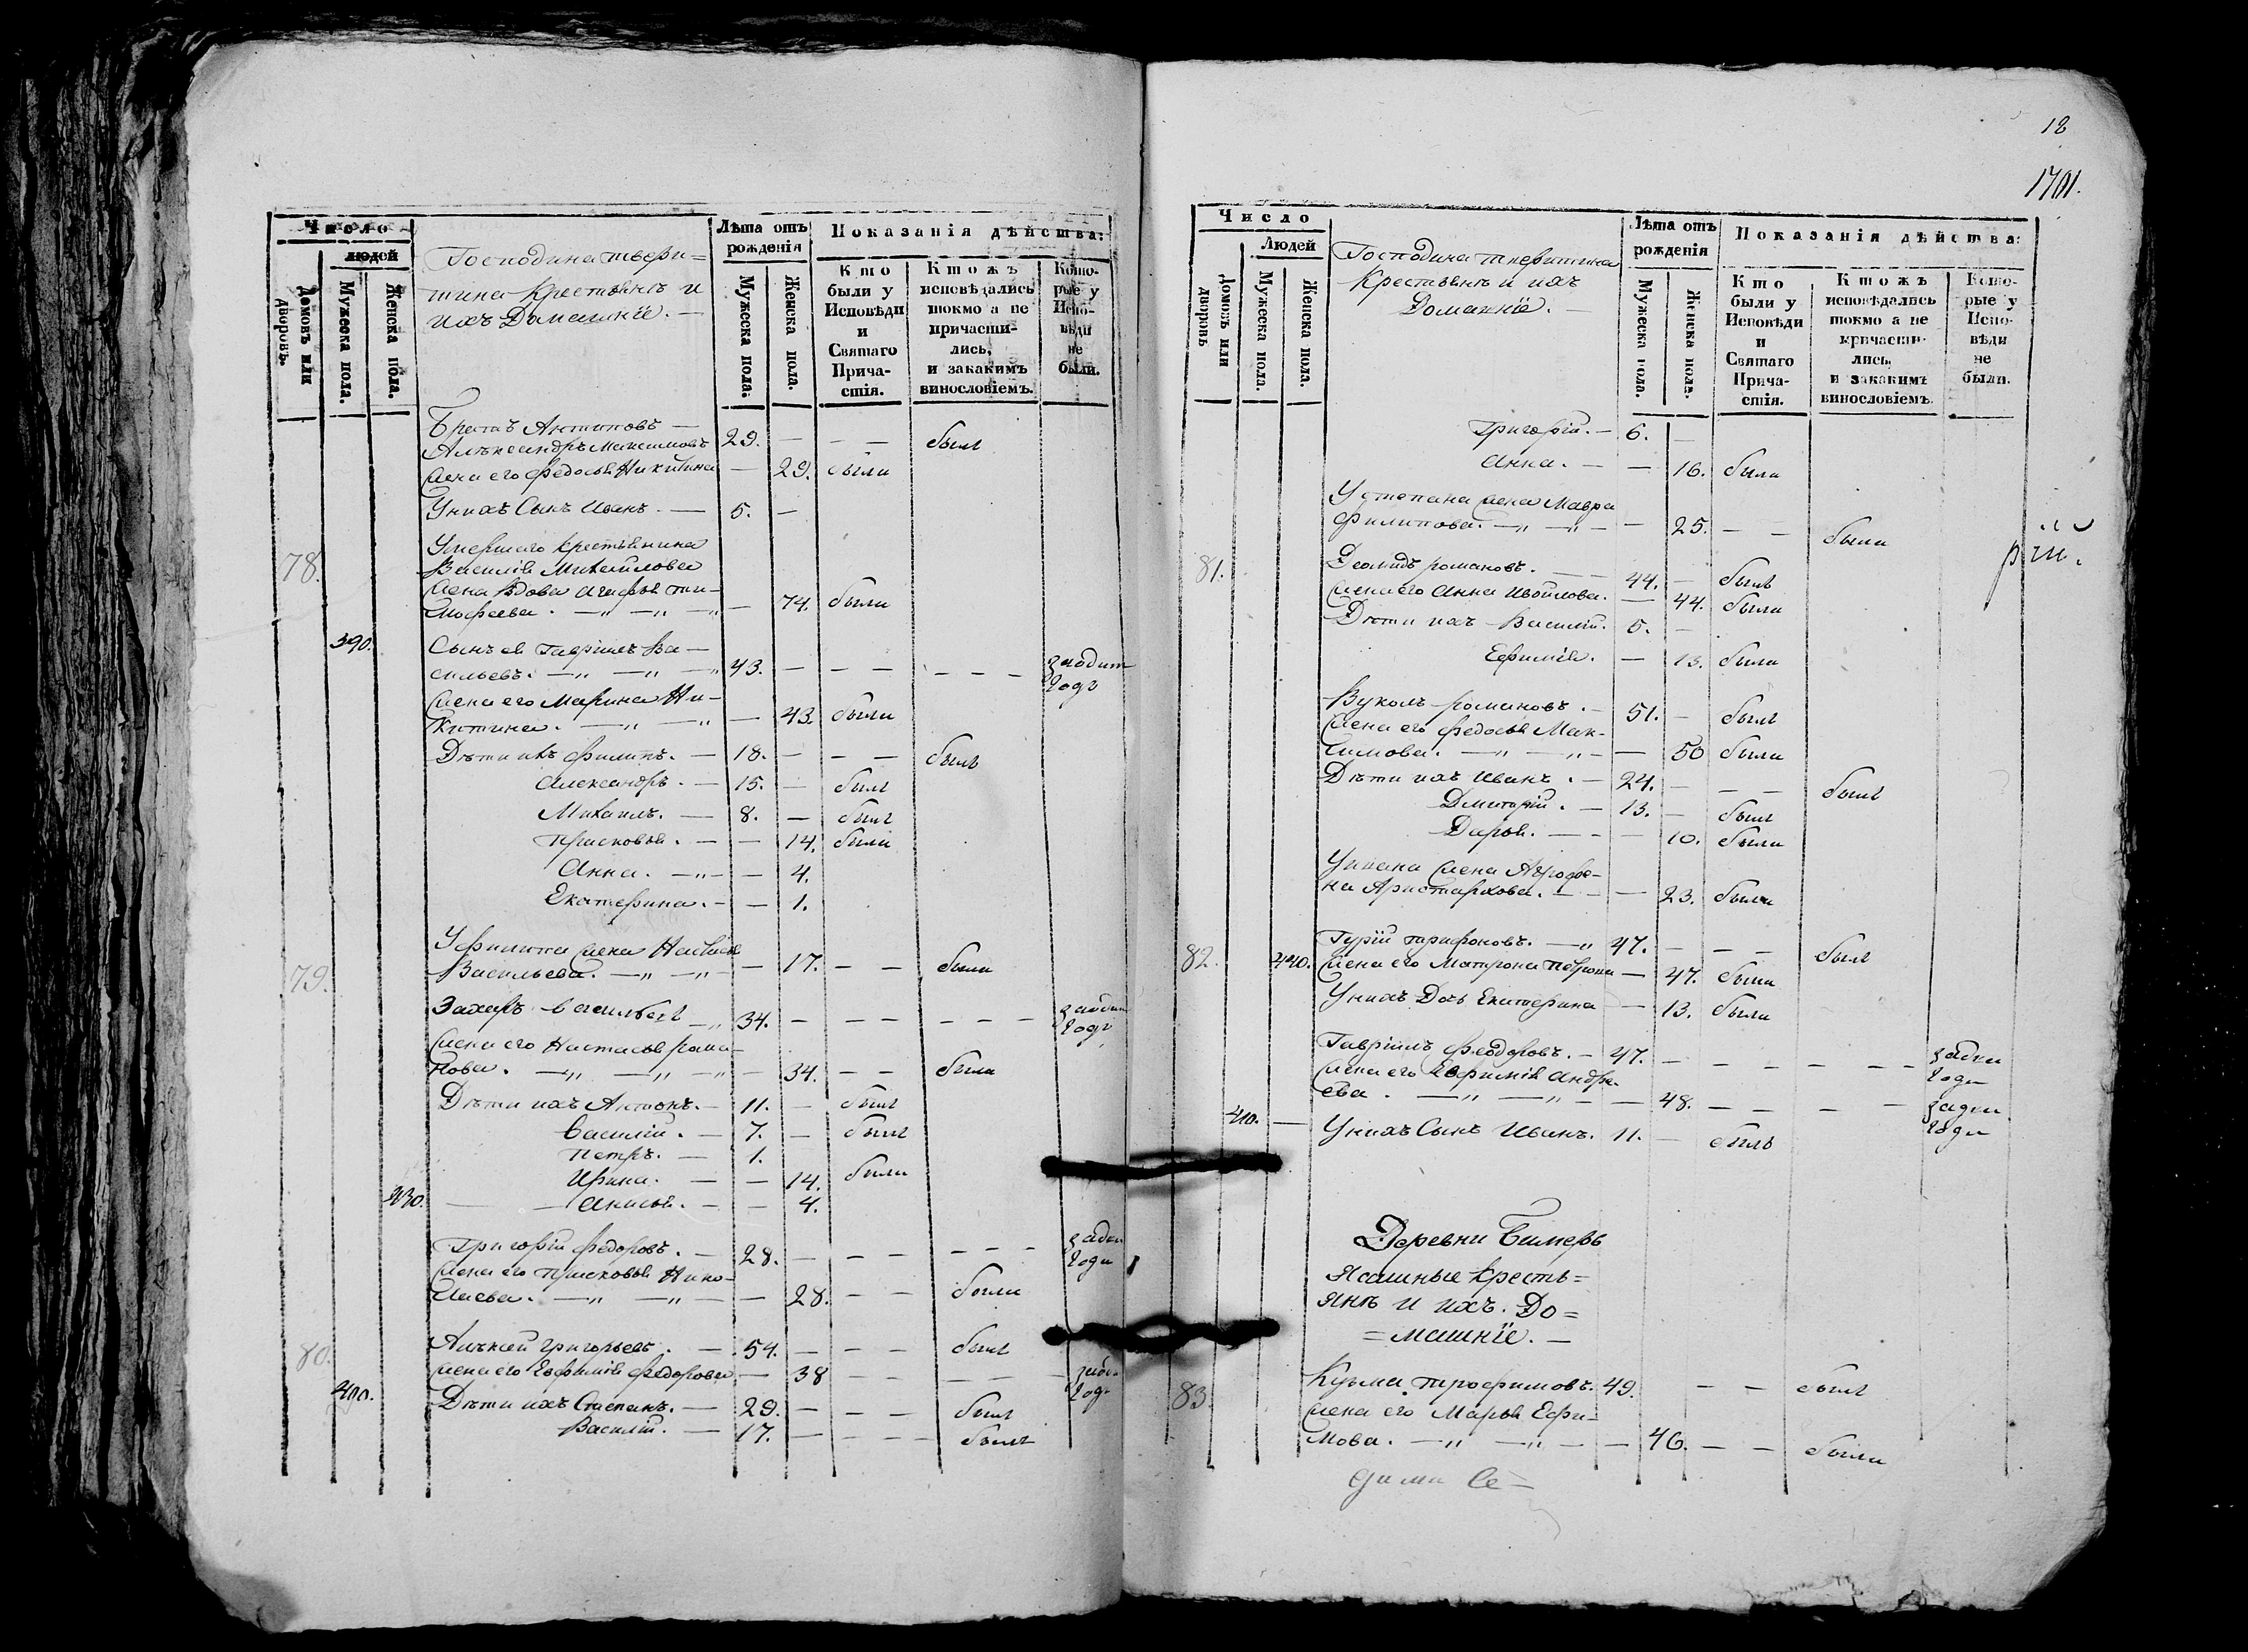 Число
людей
Домовъ или дворовъ.
Мужеска пола.
Женска пола.
Господина твери=
тина крестьянъ и
ихъ Домашніе. —
Лѣта отъ рожденія
Мужеска пола.
Женска пола.
Показанія дѣйства:
Кто были у Исповѣди и Святаго Причастія.
Ктожъ исповѣдались токмо а не причастились, и закакимъ винословіемъ.
Которые у Исповѣди не были.
Братъ Антиповъ —
Алѣксандръ Максимовъ 29. — — — былъ
жена его Федосья Никитина — 29. была
У нихъ Сынъ Иванъ. — 5. —
78. Умершаго крестьянина
Василія Михайлова
жена вдова Агафья Ти-
мофеева. — 74. была
390. Сынъ ея Гаврiилъ Ва-
сильевъ. 43. — — — — — —
годъ
жена его Марина Ни-
китина. — 43. была
Дѣти ихъ Филипъ. — 18. — — — былъ
Александръ. — 15. — былъ
Михаилъ. — 8. — былъ
Прасковья. — — 14. была
Анна. — 4.
Екатерина. — — 1.
У Филиппа жена
79. Васильева. — 17. — — была
Захаръ Васильевъ 34. — — — — — —
годъ
жена его Настасья Рома-
нова. — 34. — — была
Дѣти ихъ Антонъ. — 11. — былъ
Василій. — 7. — былъ
Петръ. — 1.
Ирина. — — 14. была
430. — — Анисья. — — 4.
Григорій Федоровъ. — 28. — — — — — —
годы
жена его Прасковья Нико-
лаева. — 28. — — была
80. Алѣксѣй Григорьевъ. — 54. — — — былъ
жена его Евфимія Федорова — 38 — — — — —
годъ
400. Дѣти ихъ Степанъ. — 29. — — — былъ
Василій. — 17. — — — — былъ
18
1701.
Число
Людей
Домовъ или дворовъ
Мужеска пола.
Женска пола.
Господина тверитина
Крестьянъ и ихъ
Домашніе. —
Лѣта отъ рожденія
Мужеска пола.
Женска пола.
Показанія дѣйства:
Кто были у Исповѣди и Святаго Причастія.
Ктожъ исповѣдались токмо а не причастились, и закакимъ винословіемъ.
Которые у Исповѣди не были.
Григорій. — 6. —
Анна. — — 16. была
У Степана жена Мавра
Филипова. — 25. — — была
81. Деомидъ Романовъ. — 44. — былъ
жена его Анна — 44. была
Дѣти ихъ Василій. 5. —
Ефимія. — 13. была
Вуколъ Романовъ. — 51. — былъ
жена его Федосья Мак-
симова. — 50 была
Дѣти ихъ Иванъ. — 24. — — — былъ
Дмитрій. — 13. — былъ
Дарья. — — 10. была
У Ивана жена Агрофе-
на Аристархова. — — 23. была
82. Гурій Трифоновъ. — 47. — — — былъ
440. жена его Матрона — 47. была
У нихъ Дочь Екатерина — 13. была
Гавріилъ Феодоровъ. — 47. — — — — — —
годы
жена его Евфимія Андре-
ева. — 48. — — — —
годы
410. — У нихъ Сынъ Иванъ. 11. — былъ
Деревни
Ясашные кресть=
янъ и ихъ. До=
=машніе. —
83. Кузма Трофимовъ. 49. — — былъ
жена его Марья Ефи-
мова. — 46. — — была